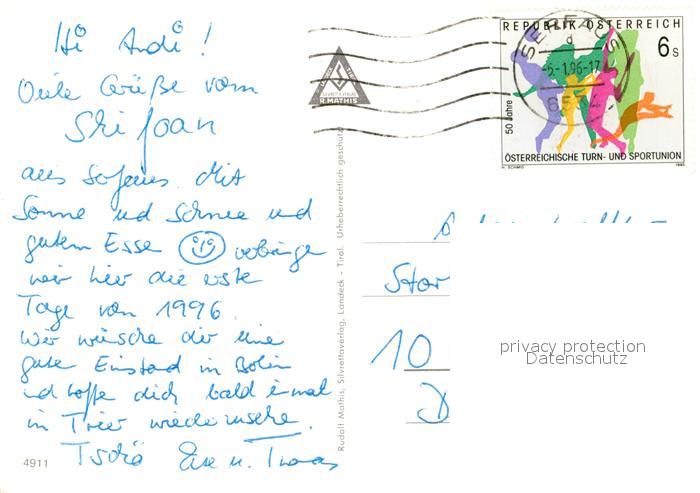 Hi Andi!
Viele Grüße vom
Skifoan
aus Serfaus. Mit
Sonne und Schnee und
gutem Esse verbringe
wir hier die erste
Tage von 1996.
Wir wünsche dir eine
gute Einstand in Berlin
und hoffe dich bald einmal
in Trier wiederzusehe.
Tschö Eva u. Thomas
4911
R. MATHIS
Rudolf Mathis, Silvrettaverlag, Landeck - Tirol. Urheberrechtlich geschützt
REPUBLIK ÖSTERREICH
6 S
50 Jahre
ÖSTERREICHISCHE TURN- UND SPORTUNION
H. SCHMID 1995
SERFAUS
d
-5-1.96-17
6534
Stor
10
D
privacy protection
Datenschutz